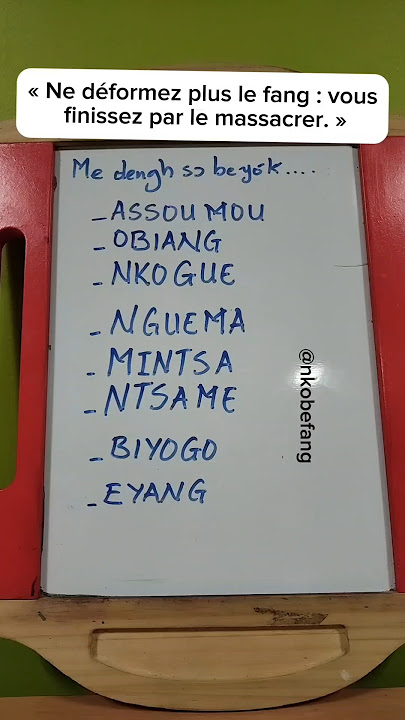 « Ne déformez plus le fang : vous
finissez par le massacrer. »
Me dengh sɔ be yók....
- ASSOUMOU
- OBIANG
- NKOGUE
- NGUEMA
- MINTSA
- NTSAME
- BIYOGO
- EYANG
@nkobefang